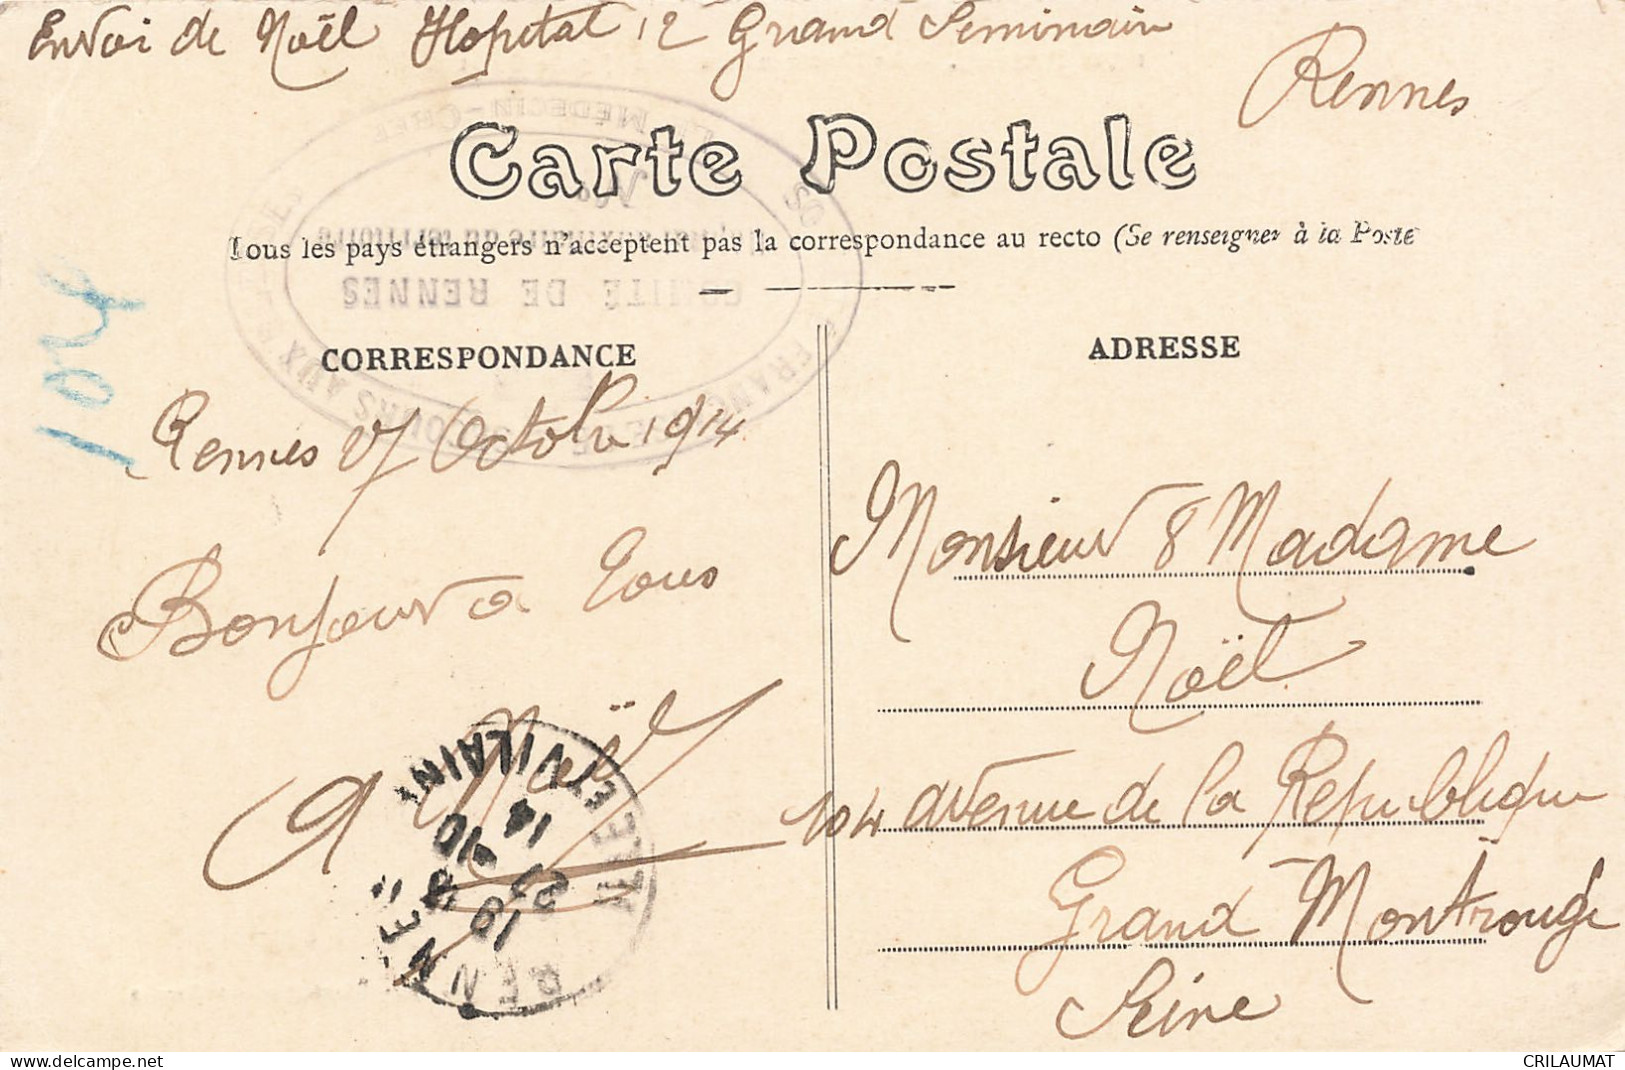 Envoi de Noël Hopital 12 Grand Seminair
Rennes
LE MÉDECIN-CHEF
Carte Postale
Tous les pays étrangers n'acceptent pas la correspondance au recto (Se renseigner à la Poste
COMITÉ DE RENNES
104
CORRESPONDANCE
ADRESSE
Rennes 27 Octobre 1914
Bonjour à tous
Noël
Monsieur & Madame
Noël
104 avenue de la Republique
Grand Montrouge
Seine
RENNES
ILLE ET VILAINE
19
27 - 10
14
CRILAUMAT